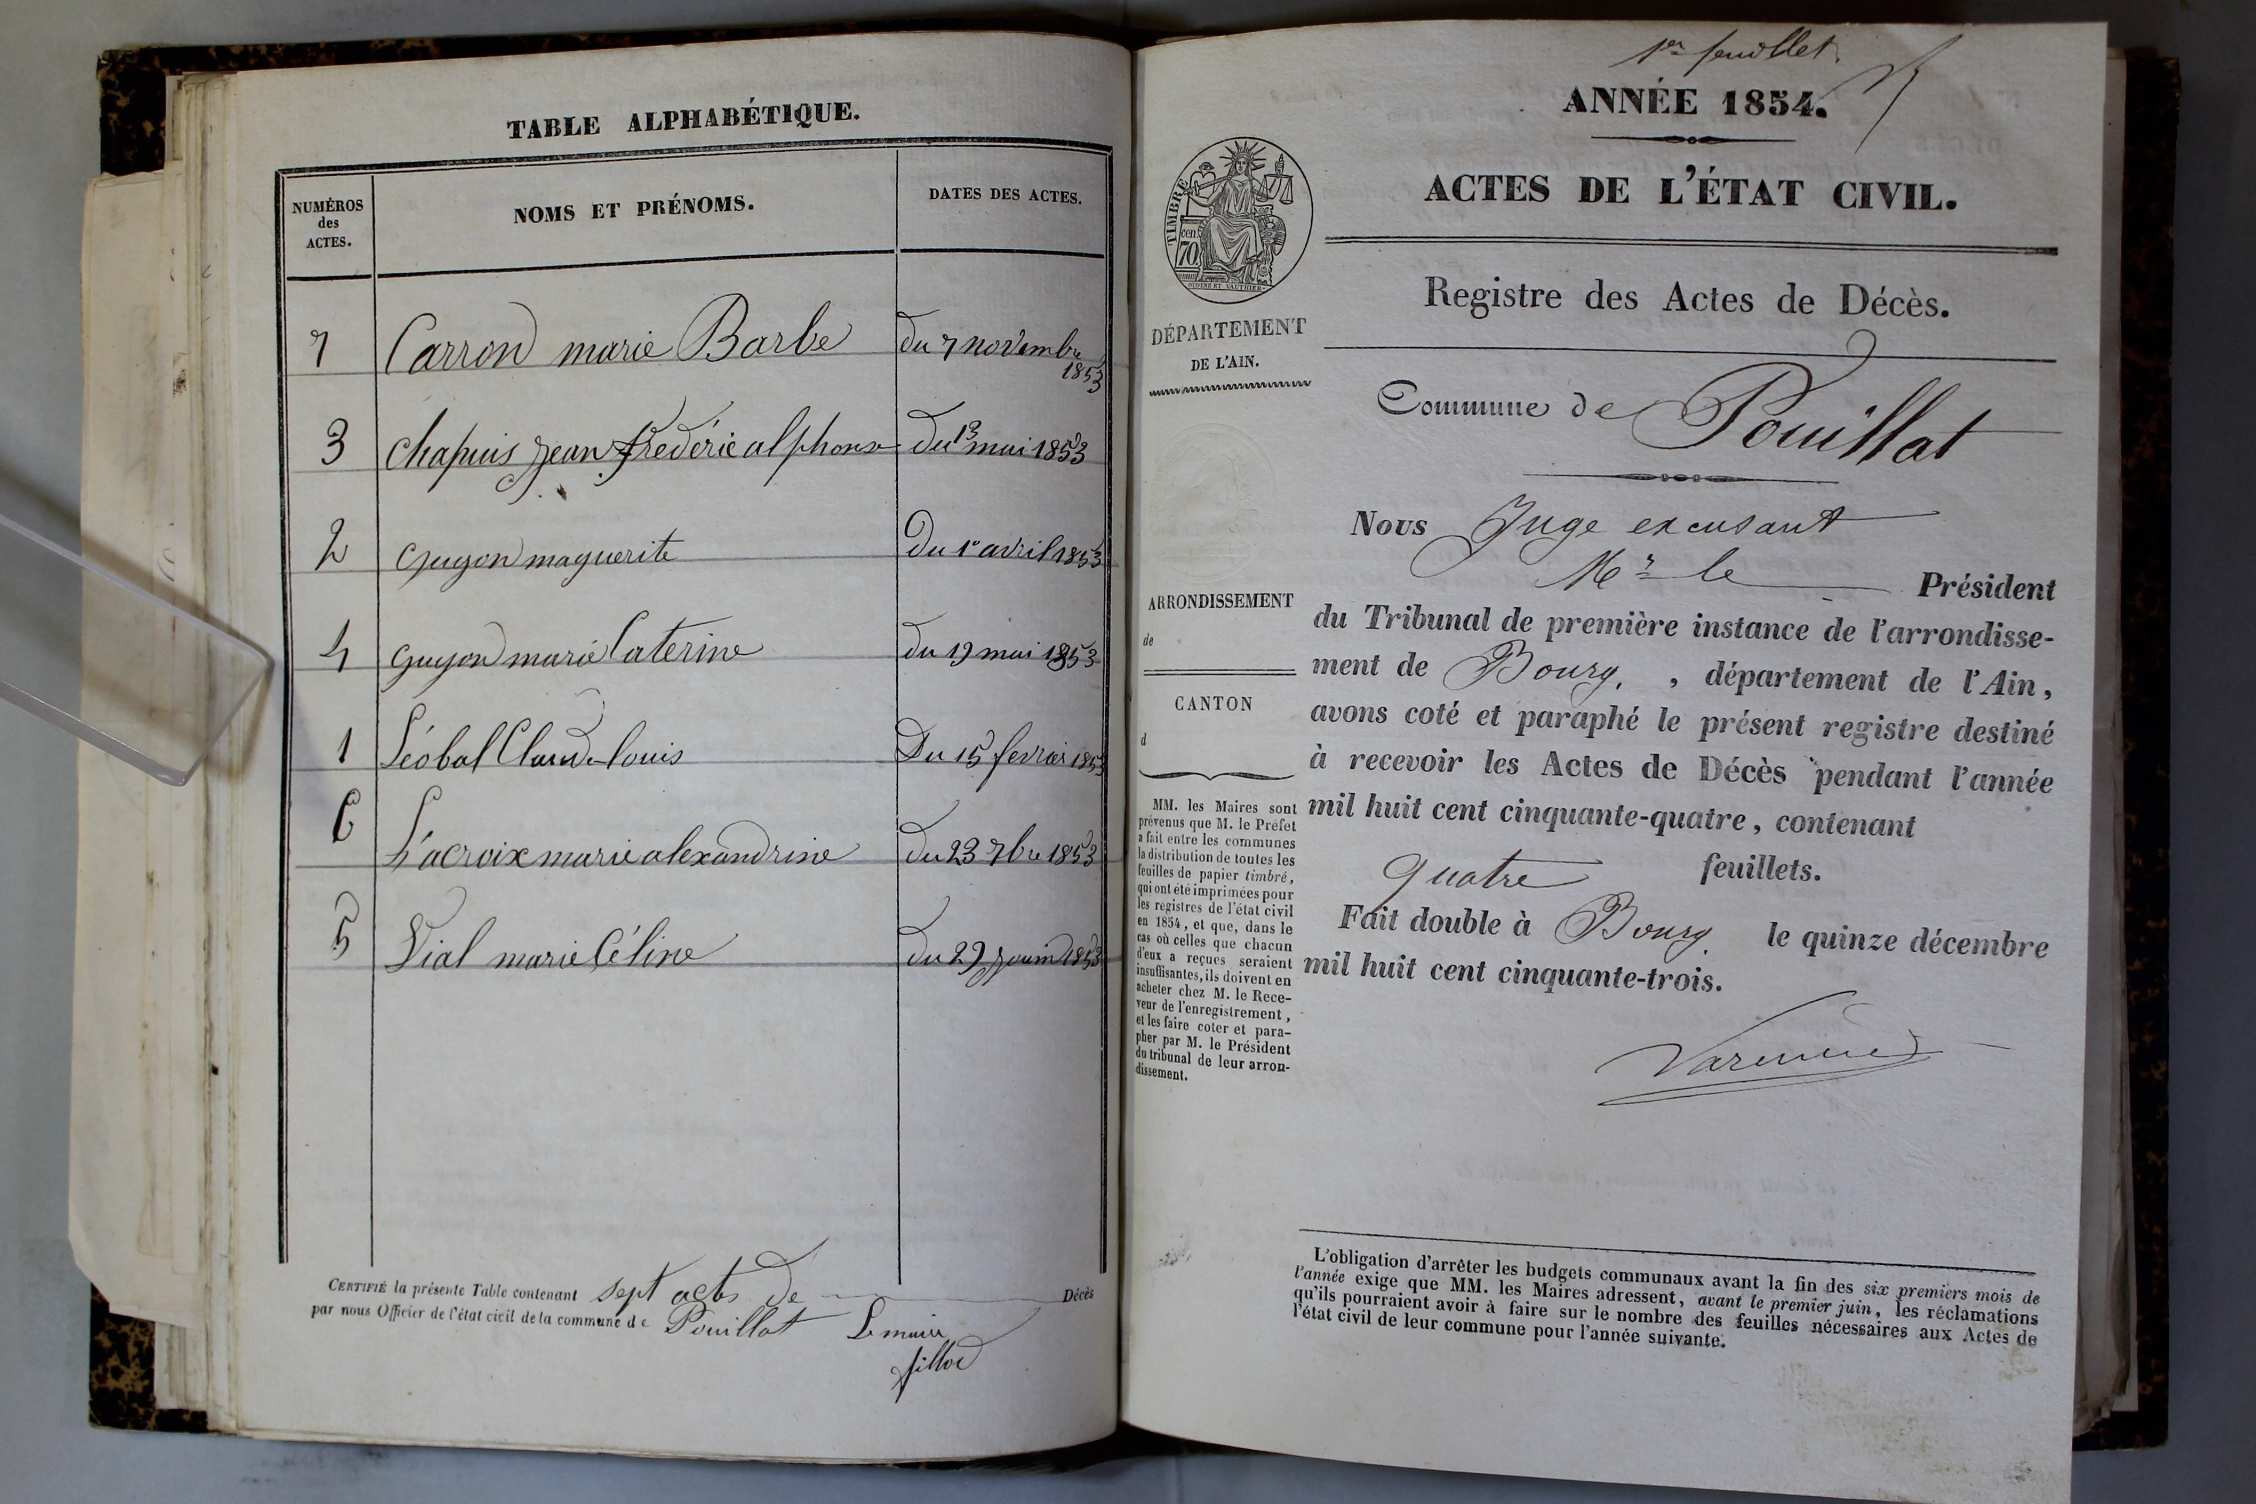 TABLE ALPHABÉTIQUE.
NUMÉROS
des
ACTES.
NOMS ET PRÉNOMS.
DATES DES ACTES.
7 Carron marie Barbe du 7 novembre 1853
3 Chapuis jean frédéric alphonse du 13 mai 1853
2 guyon maguerite Du 1er avril 1853
4 guyon marie Caterine du 19 mai 1853
1 Léobal Claude louis Du 15 fevrier 1853
6 Lacroix marie alexandrine du 23 7bre 1853
5 Vial marie Céline du 29 juin 1853
CERTIFIÉ la présente Table contenant sept actes de Décès
par nous Officier de l'état civil de la commune de Pouillat Le maire
1er feuillet
ANNÉE 1854.
ACTES DE L'ÉTAT CIVIL.
TIMBRE
70 cen.
Registre des Actes de Décès.
DÉPARTEMENT
DE L'AIN.
Commune de Pouillat
Nous Juge excusant
Mr le Président
du Tribunal de première instance de l'arrondisse-
ment de Bourg, département de l'Ain,
avons coté et paraphé le présent registre destiné
à recevoir les Actes de Décès pendant l'année
mil huit cent cinquante-quatre, contenant
quatre feuillets.
Fait double à Bourg le quinze décembre
mil huit cent cinquante-trois.
ARRONDISSEMENT
de
CANTON
d
MM. les Maires sont
prévenus que M. le Préfet
a fait entre les communes
la distribution de toutes les
feuilles de papier timbré,
qui ont été imprimées pour
les registres de l'état civil
en 1854, et que, dans le
cas où celles que chacun
d'eux a reçues seraient
insuffisantes, ils doivent en
acheter chez M. le Rece-
veur de l'enregistrement,
et les faire coter et para-
pher par M. le Président
du tribunal de leur arron-
dissement.
L'obligation d'arrêter les budgets communaux avant la fin des six premiers mois de
l'année exige que MM. les Maires adressent, avant le premier juin, les réclamations
qu'ils pourraient avoir à faire sur le nombre des feuilles nécessaires aux Actes de
l'état civil de leur commune pour l'année suivante.